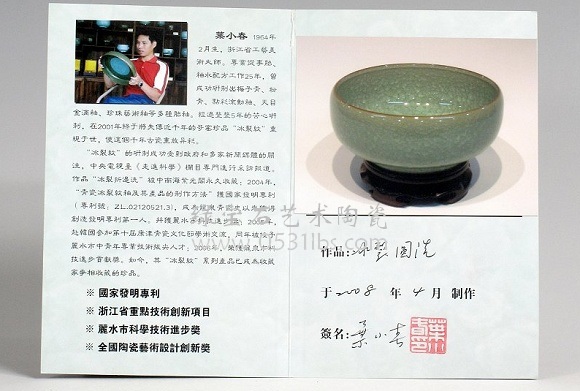 葉小春 1964年
2月生，浙江省工藝美
術大師。專業從事陶、
釉水配方工作25年，曾
成功研制出梅子青、粉
青、點彩流動釉、天目
金滴釉、珍珠藝術釉等多種陶釉。經過整整5年的苦心研
制，在2001年終于將失傳近千年的哥窑珍品“冰裂紋”重
現于世，使這個千年古瓷重放异彩。
“冰裂紋”的研制成功受到政府和多家新聞媒體的關
注，中央電視臺《走進科學》欄目專門進行采訪報道。
作品“冰裂附邊洗”被中南海紫光閣永久收藏；2004年，
“青瓷冰裂紋釉及其產品的制作方法”獲國家發明專利
（專利號：ZL.02120521.3），
創造發明專利第一人，并獲麗水市科技進步獎；2005年，
赴韓國參加第一届康津青瓷文化節學術交流，同年被授予
麗水市中青年專業技術拔尖人才；2006年，榮獲龍泉市科
技進步貢獻獎。如今，其“冰裂紋”系列產品已成為收藏
家爭相收藏的珍品。
※ 國家發明專利
※ 浙江省重點技術創新項目
※ 麗水市科學技術進步獎
※ 全國陶瓷藝術設計創新獎
作品：冰裂圓洗
于2008 年 4 月 制作
簽名：葉小春
艺术陶瓷